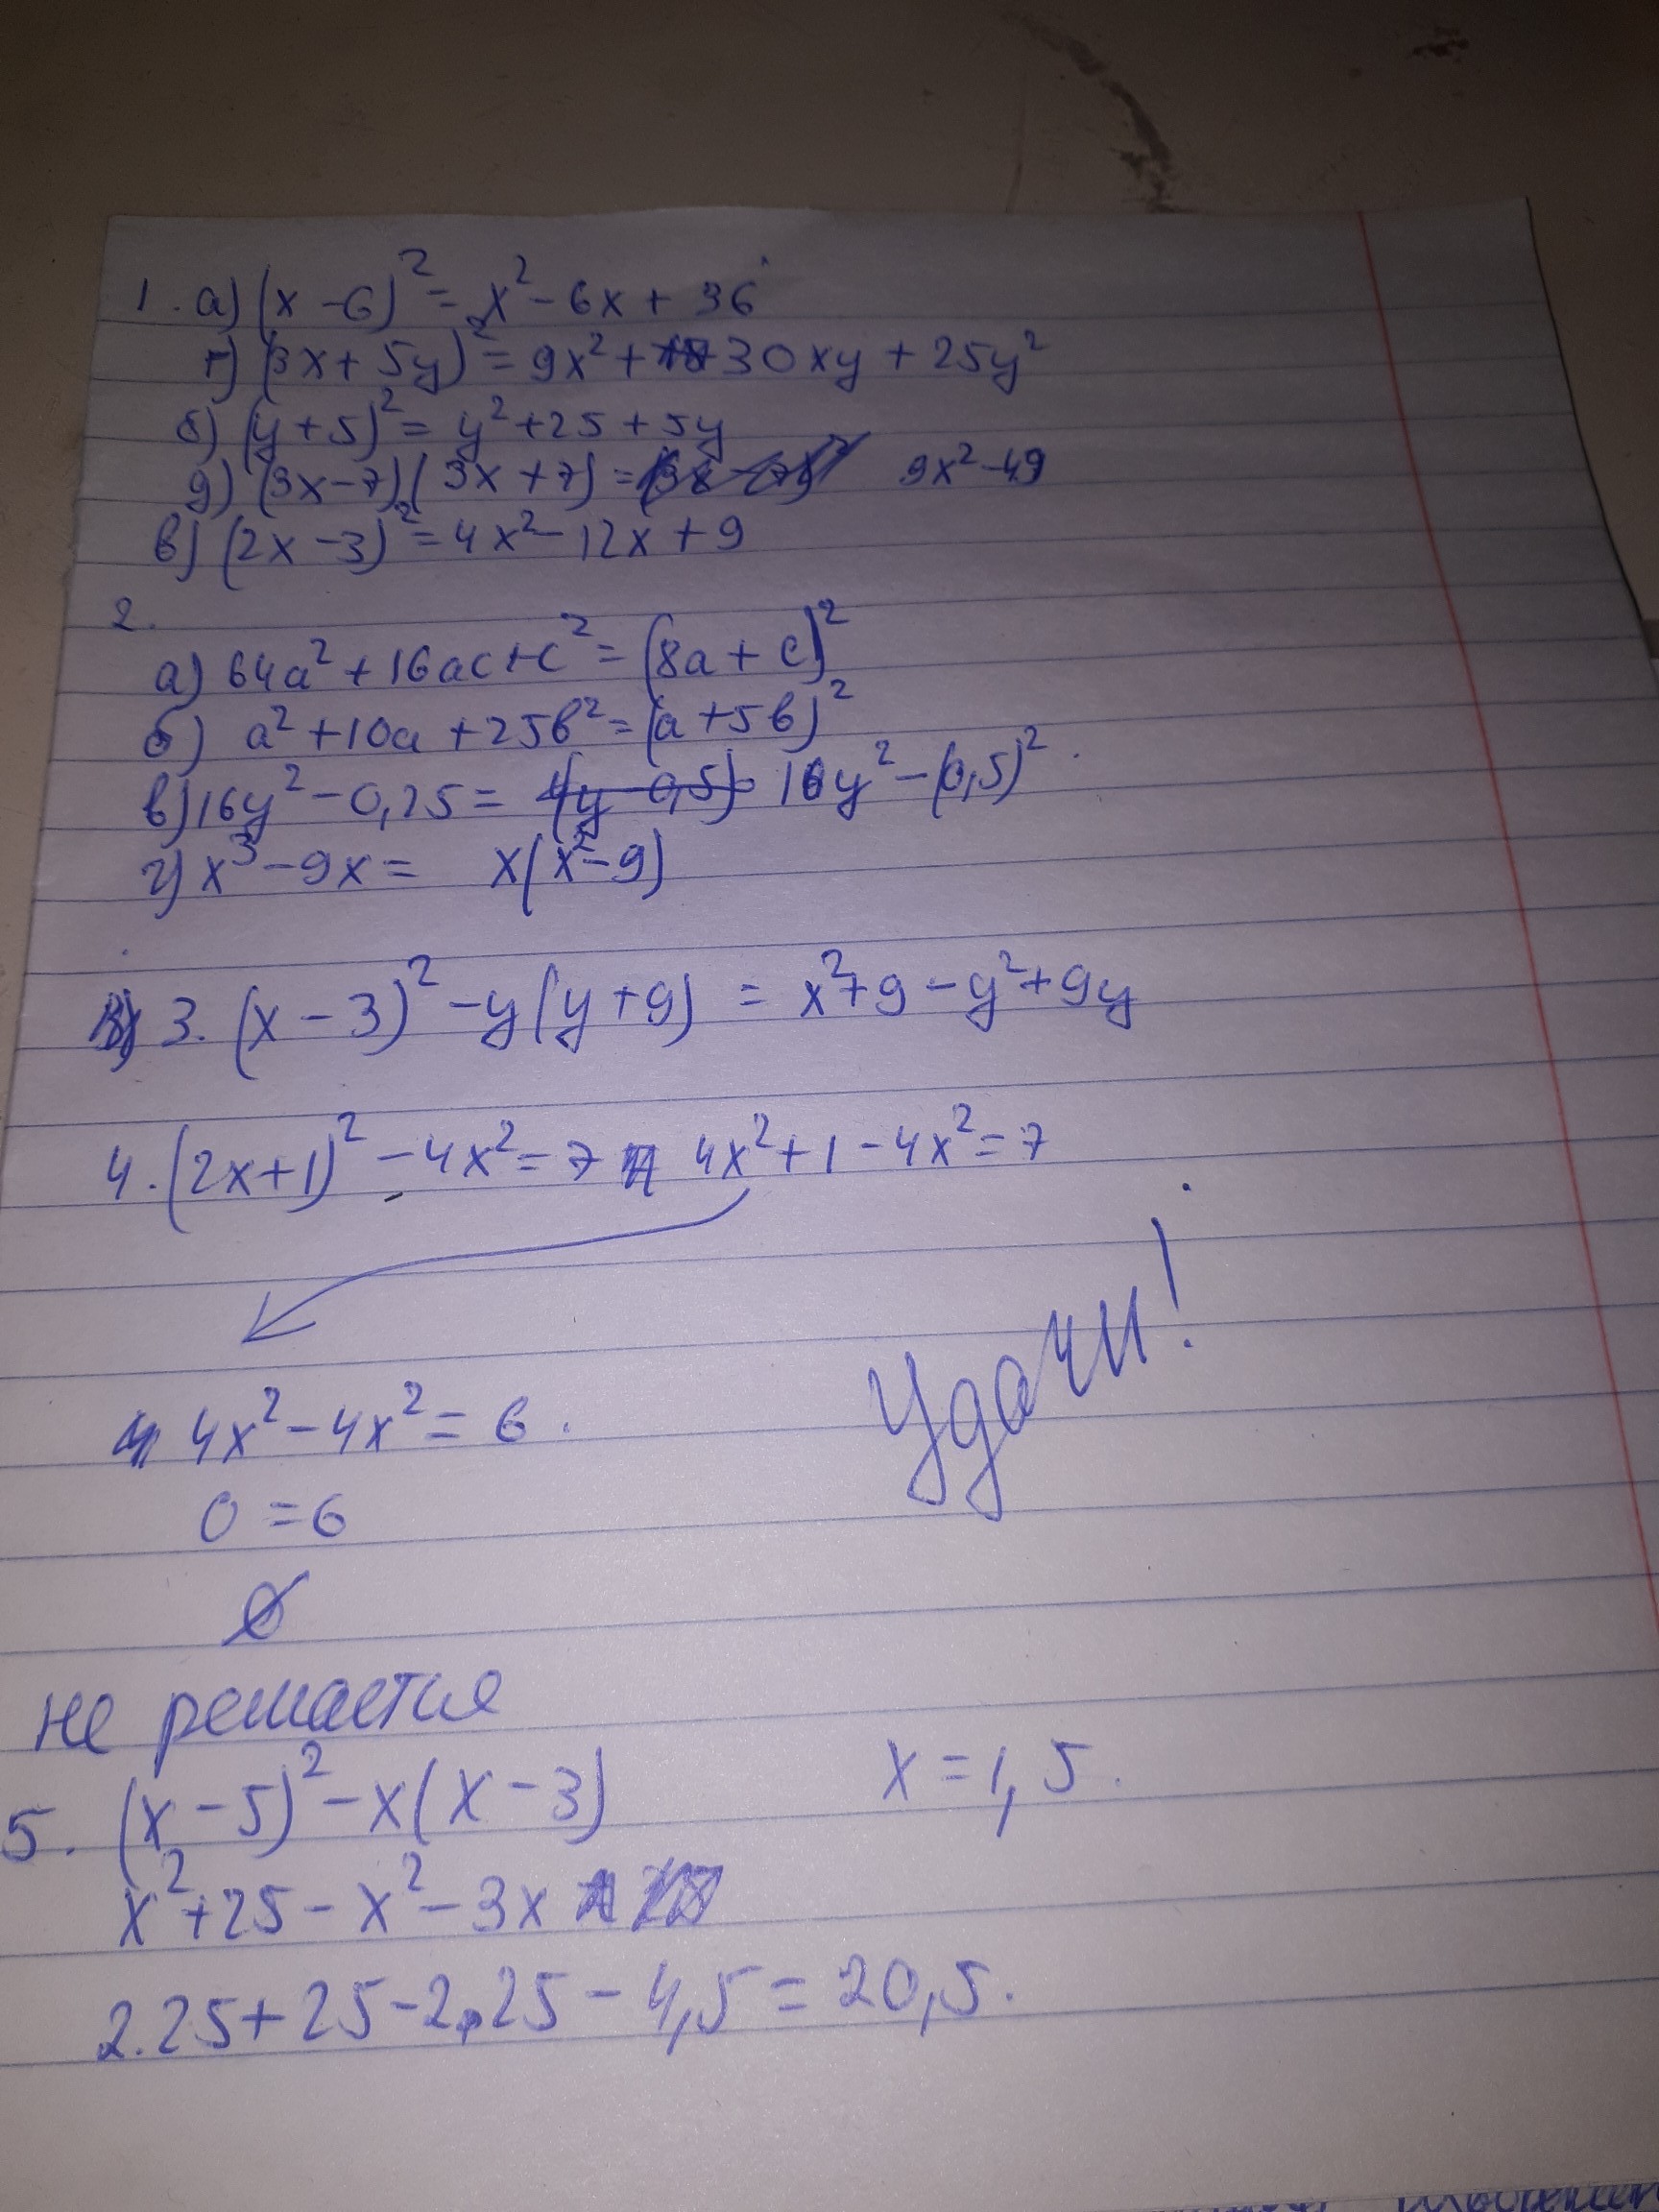 1. а) (x - 6)² = x² - 6x + 36
г) (3x + 5y)² = 9x² + 30xy + 25y²
б) (y + 5)² = y² + 25 + 5y
д) (3x - 7)(3x + 7) = 9x² - 49
в) (2x - 3)² = 4x² - 12x + 9
2.
а) 64a² + 16ac + c² = (8a + c)²
б) a² + 10a + 25b² = (a + 5b)²
в) 16y² - 0,25 = 4(y - 0,5) 16y² - (0,5)²
г) x³ - 9x = x(x² - 9)
3. (x - 3)² - y(y + 9) = x² + 9 - y² + 9y
4. (2x + 1)² - 4x² = 7 4x² + 1 - 4x² = 7
4x² - 4x² = 6.
0 = 6
Удачи!
∅
не решается
5. (x - 5)² - x(x - 3) x = 1,5.
x² + 25 - x² - 3x
2.25 + 25 - 2,25 - 4,5 = 20,5.